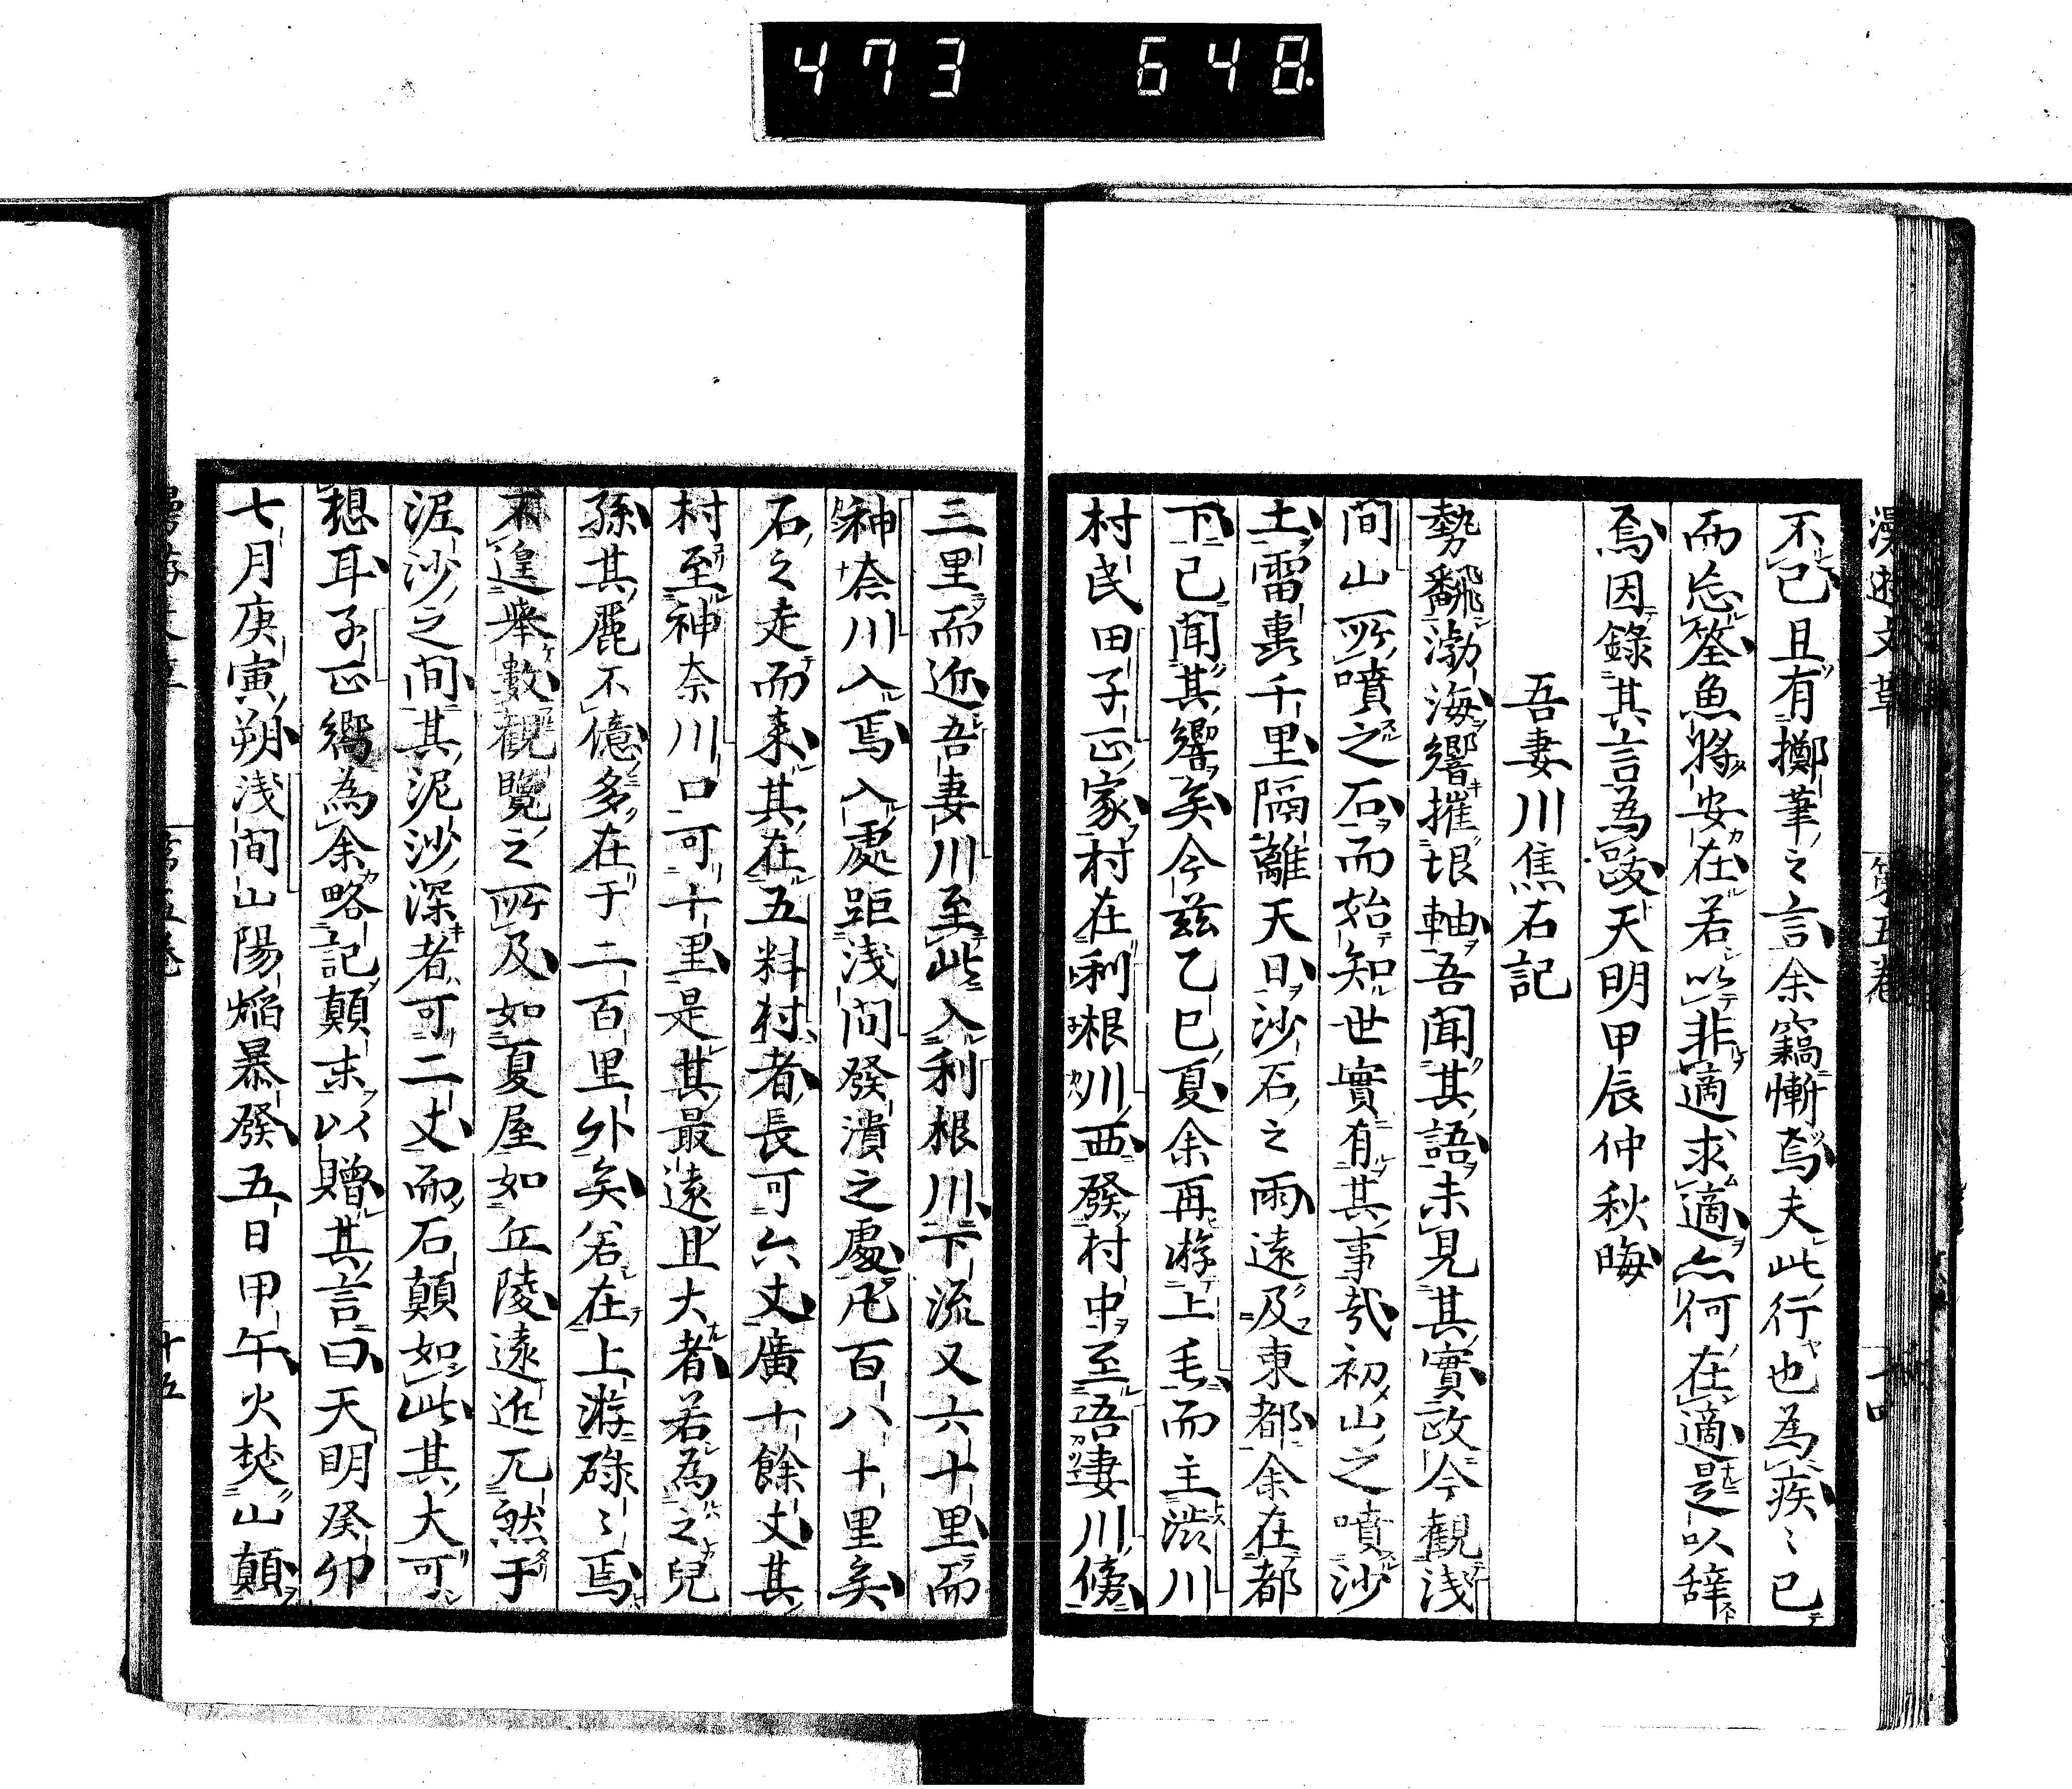 473 648.
漫遊文草 第五卷 十四
不已且有擲筆之言余竊慚焉夫此行也為疾〻已
而忘筌魚將安在若以非適求適亦何在適是以辞
焉因錄其言為跋天明甲辰仲秋晦
吾妻川焦石記
勢飜渤海響摧垠軸吾聞其語未見其實政今觀浅
間山所噴之石而始知世實有其事哉初山之噴沙
土雷轟千里隔離天日沙石之雨遠及東都余在都
下已聞其響矣今茲乙巳夏余再游上毛而主澁川
村民田子正家村在利根川西發村中至吾妻川傍
三里而近吾妻川至此入利根川下流又六十里而
神奈川入焉入處距浅間發潰之處凡百八十里矣
石之走而来其在五料村者長可六丈廣十餘丈其
村至神奈川口可十里是其最遠且大者若為之兒
孫其麗不億多在于二百里外矣若在上游碌〻焉
不遑舉數觀覽之所及如夏屋如丘陵遠近兀然于
泥沙之間其泥沙深者可二丈而石顛如此其大可
想耳子正嚮為余略記顛末以贈其言曰天明癸卯
七月庚寅朔浅間山陽焔暴發五日甲午火焚山顛
十五